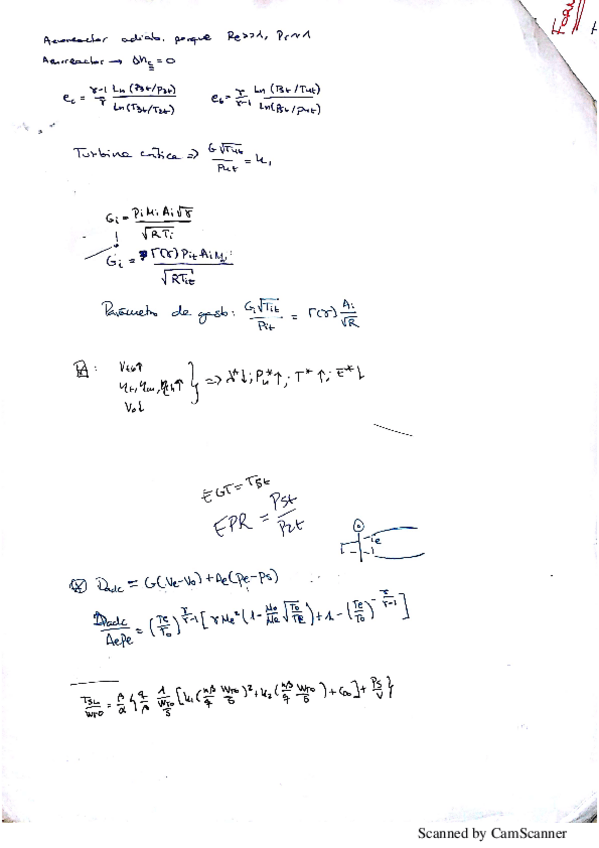 FORM
Aerorreactor adiab. porque Re>>1, Pr~1
Aerorreactor → Δh_c = 0
e_c = γ-1/γ Ln(P3t/P2t)/Ln(T3t/T2t)   e_t = γ/γ-1 Ln(T5t/T4t)/Ln(P5t/P4t)
Turbina crítica => G√T4t/P4t = k1
Gi = Pi Mi Ai √γ/√RTi
Gi = Γ(γ) Pit Ai Mi/√RTit
Parámetro de gasto: Gi√Tit/Pit = Γ(γ) Ai/√R
EGT = T5t
EPR = P5t/P2t
Dadc = G(Ve-Vo) + Ae(Pe-Ps)
Dadc/AePe = (Te/To)^γ/γ-1 [γMe²(1 - Mo/Me √To/Te) + 1 - (Te/To)^-γ/γ-1]
TSL/WTO = β/α { q/β 1/WTO/S [k1(nβ/q WTO/S)² + k2(nβ/q WTO/S) + CDo] + Ps/V }
Scanned by CamScanner